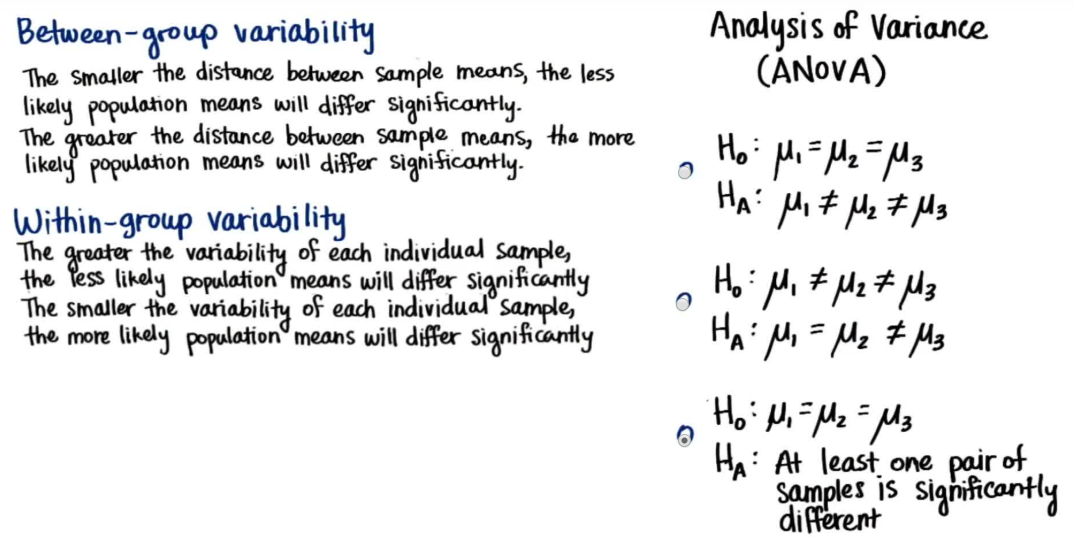 Between-group variability
The smaller the distance between sample means, the less
likely population means will differ significantly.
The greater the distance between sample means, the more
likely population means will differ significantly.
Within-group variability
The greater the variability of each individual sample,
the less likely population means will differ significantly
The smaller the variability of each individual sample,
the more likely population means will differ significantly
Analysis of Variance
(ANOVA)
H₀: μ₁ = μ₂ = μ₃
H_A: μ₁ ≠ μ₂ ≠ μ₃
H₀: μ₁ ≠ μ₂ ≠ μ₃
H_A: μ₁ = μ₂ ≠ μ₃
H₀: μ₁ = μ₂ = μ₃
H_A: At least one pair of
samples is significantly
different